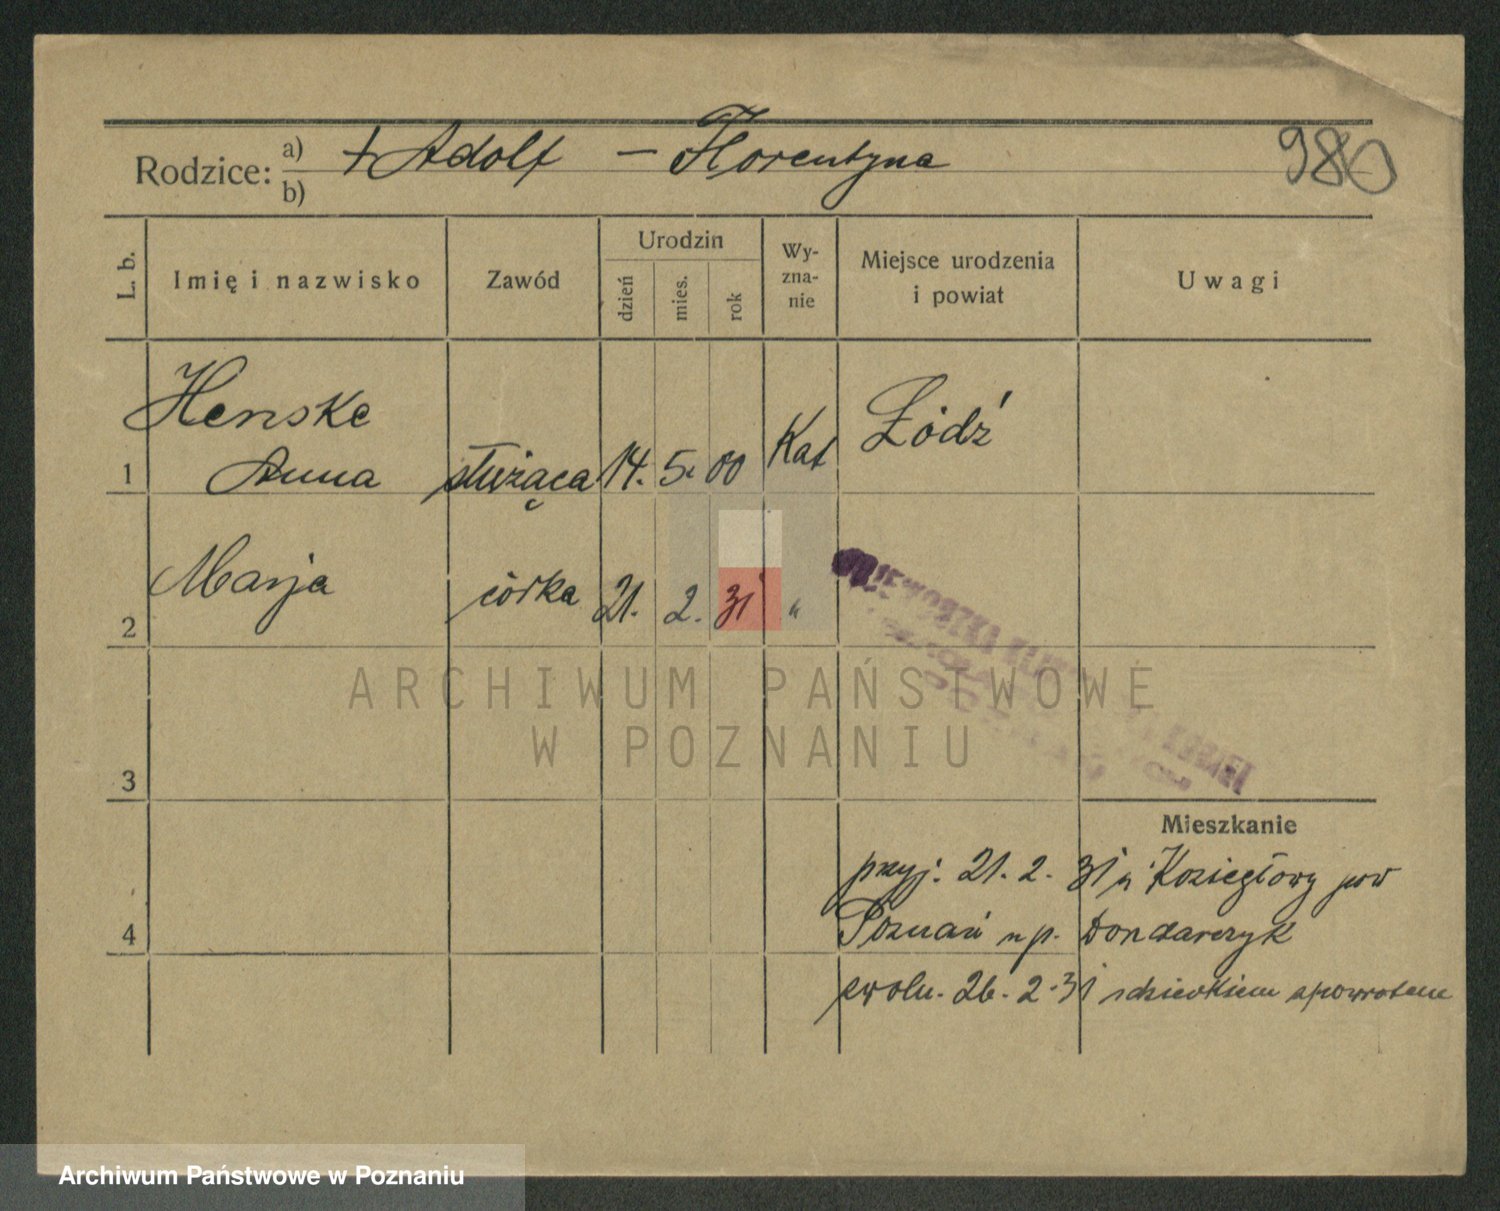 Rodzice: a) + Adolf — Florentyna
b)
980
L. b.
Imię i nazwisko
Zawód
Urodzin
dzień
mies.
rok
Wy-
zna-
nie
Miejsce urodzenia
i powiat
Uwagi
Henske
1 Anna służąca 14. 5. 00 Kat Łódź
2 Marja córka 21. 2. 31 "
ARCHIWUM PAŃSTWOWE
W POZNANIU
3
Mieszkanie
przyj. 21. 2. 31 z Koziegłowy pow
4 Poznań u p. Dondarczyk
zwoln. 26. 2. 31 z dzieckiem z powrotem
Archiwum Państwowe w Poznaniu